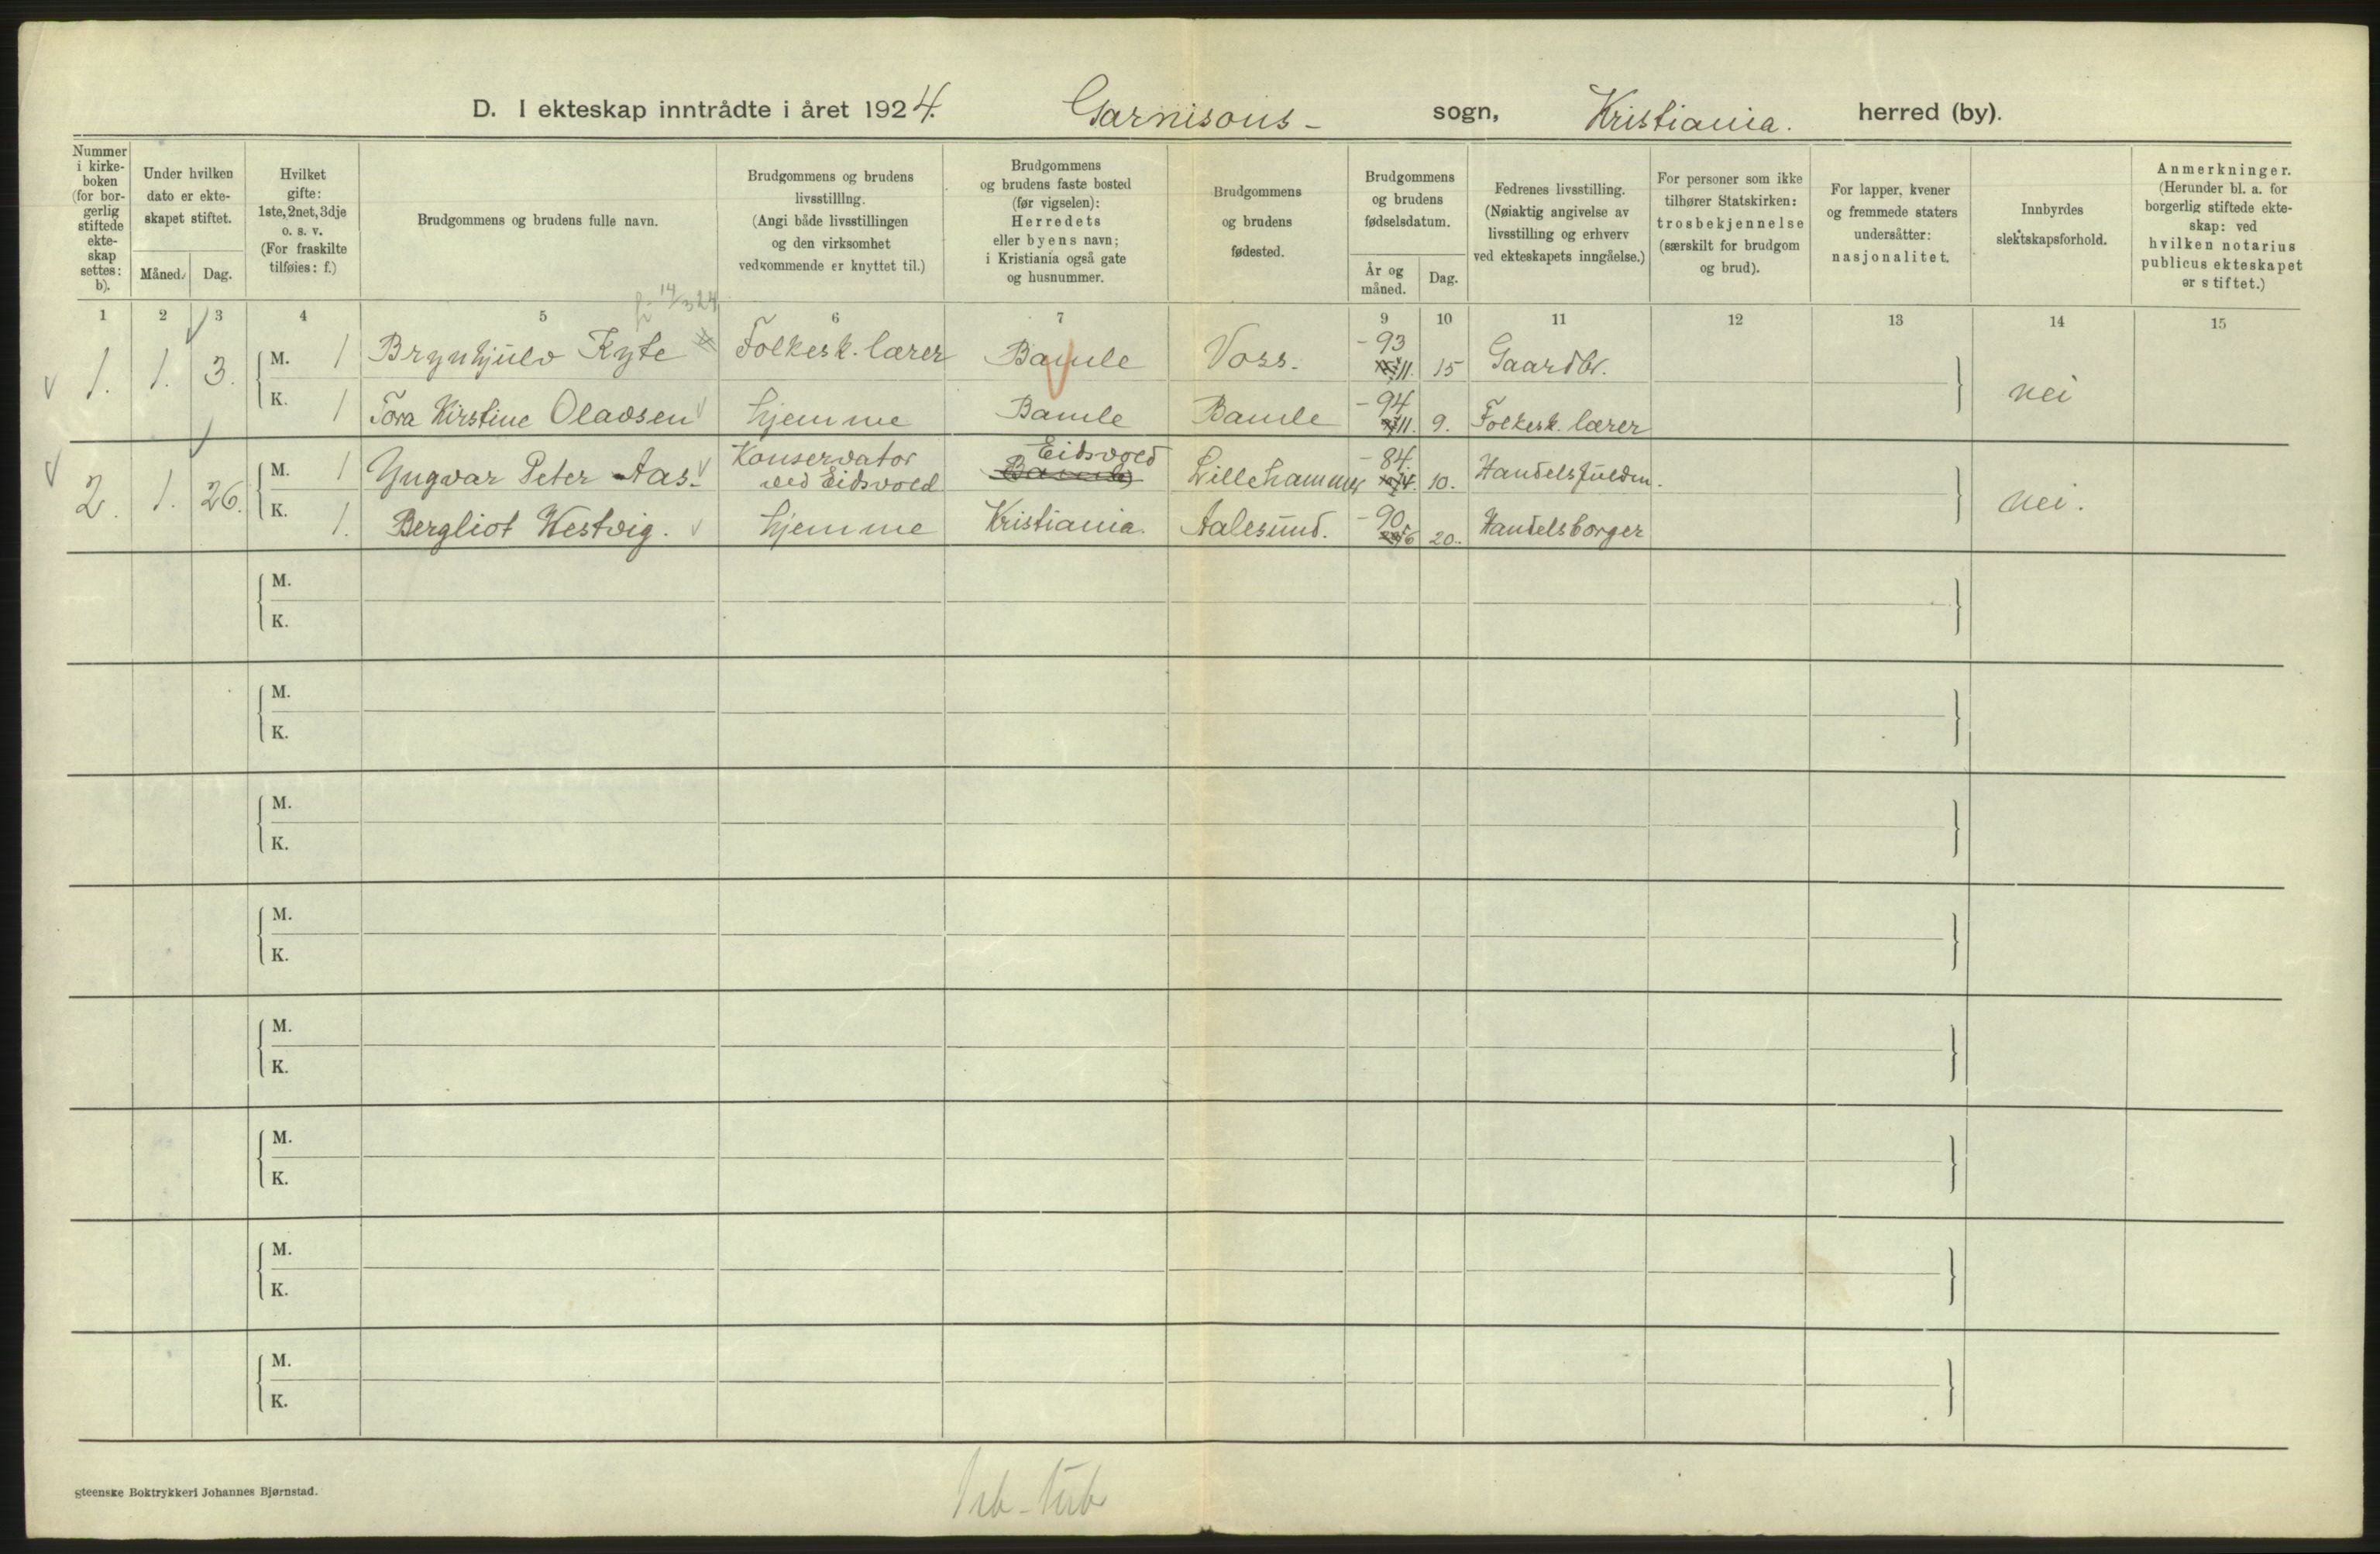 D. I ekteskap inntrådte i året 1924. Garnisons- sogn, Kristiania. herred (by).
Nummer
i kirke-
boken
(for bor-
gerlig
stiftede
ekte-
skap
settes:
b).
Under hvilken
dato er ekte-
skapet stiftet.
Måned.
Dag.
Hvilket
gifte:
1ste, 2net, 3dje
o. s. v.
(For fraskilte
tilføies: f.)
Brudgommens og brudens fulle navn.
Brudgommens og brudens
livsstilllng.
(Angi både livsstillingen
og den virksomhet
vedkommende er knyttet til.)
Brudgommens
og brudens faste bosted
(før vigselen):
Herredets
eller byens navn;
i Kristiania også gate
og husnummer.
Brudgommens
og brudens
fødested.
Brudgommens
og brudens
fødselsdatum.
År og
måned.
Dag.
Fedrenes livsstilling.
(Nøiaktig angivelse av
livsstilling og erhverv
ved ekteskapets inngåelse.)
For personer som ikke
tilhører Statskirken:
trosbekjennelse
(særskilt for brudgom
og brud).
For lapper, kvener
og fremmede staters
undersåtter:
nasjonalitet.
Innbyrdes
slektskapsforhold.
Anmerkninger.
(Herunder bl. a. for
borgerlig stiftede ekte-
skap: ved
hvilken notarius
publicus ekteskapet
er stiftet.)
14/3 24
1 2 3 4 5 6 7 9 10 11 12 13 14 15
1. 1. 3. M. 1 Brynhjulv Kyte Folkesk. lærer Bamle Voss. -93 11. 15 Gaardbr. nei
K. 1 Tora Kirstine Olavsen hjemme Bamle Bamle -94 11. 9. Folkesk. lærer
2. 1. 26. M. 1 Yngvar Peter Aas. Konservator
ved Eidsvold Eidsvold
Bamle Lillehammer -84. 4. 10. Handelsfuldm. nei.
K. 1. Bergliot Westvig. hjemme Kristiania. Aalesund. -90 6 20. Handelsborger
M.
K.
M.
K.
M.
K.
M.
K.
M.
K.
M.
K.
M.
K.
M.
K.
Steenske Boktrykkeri Johannes Bjørnstad.